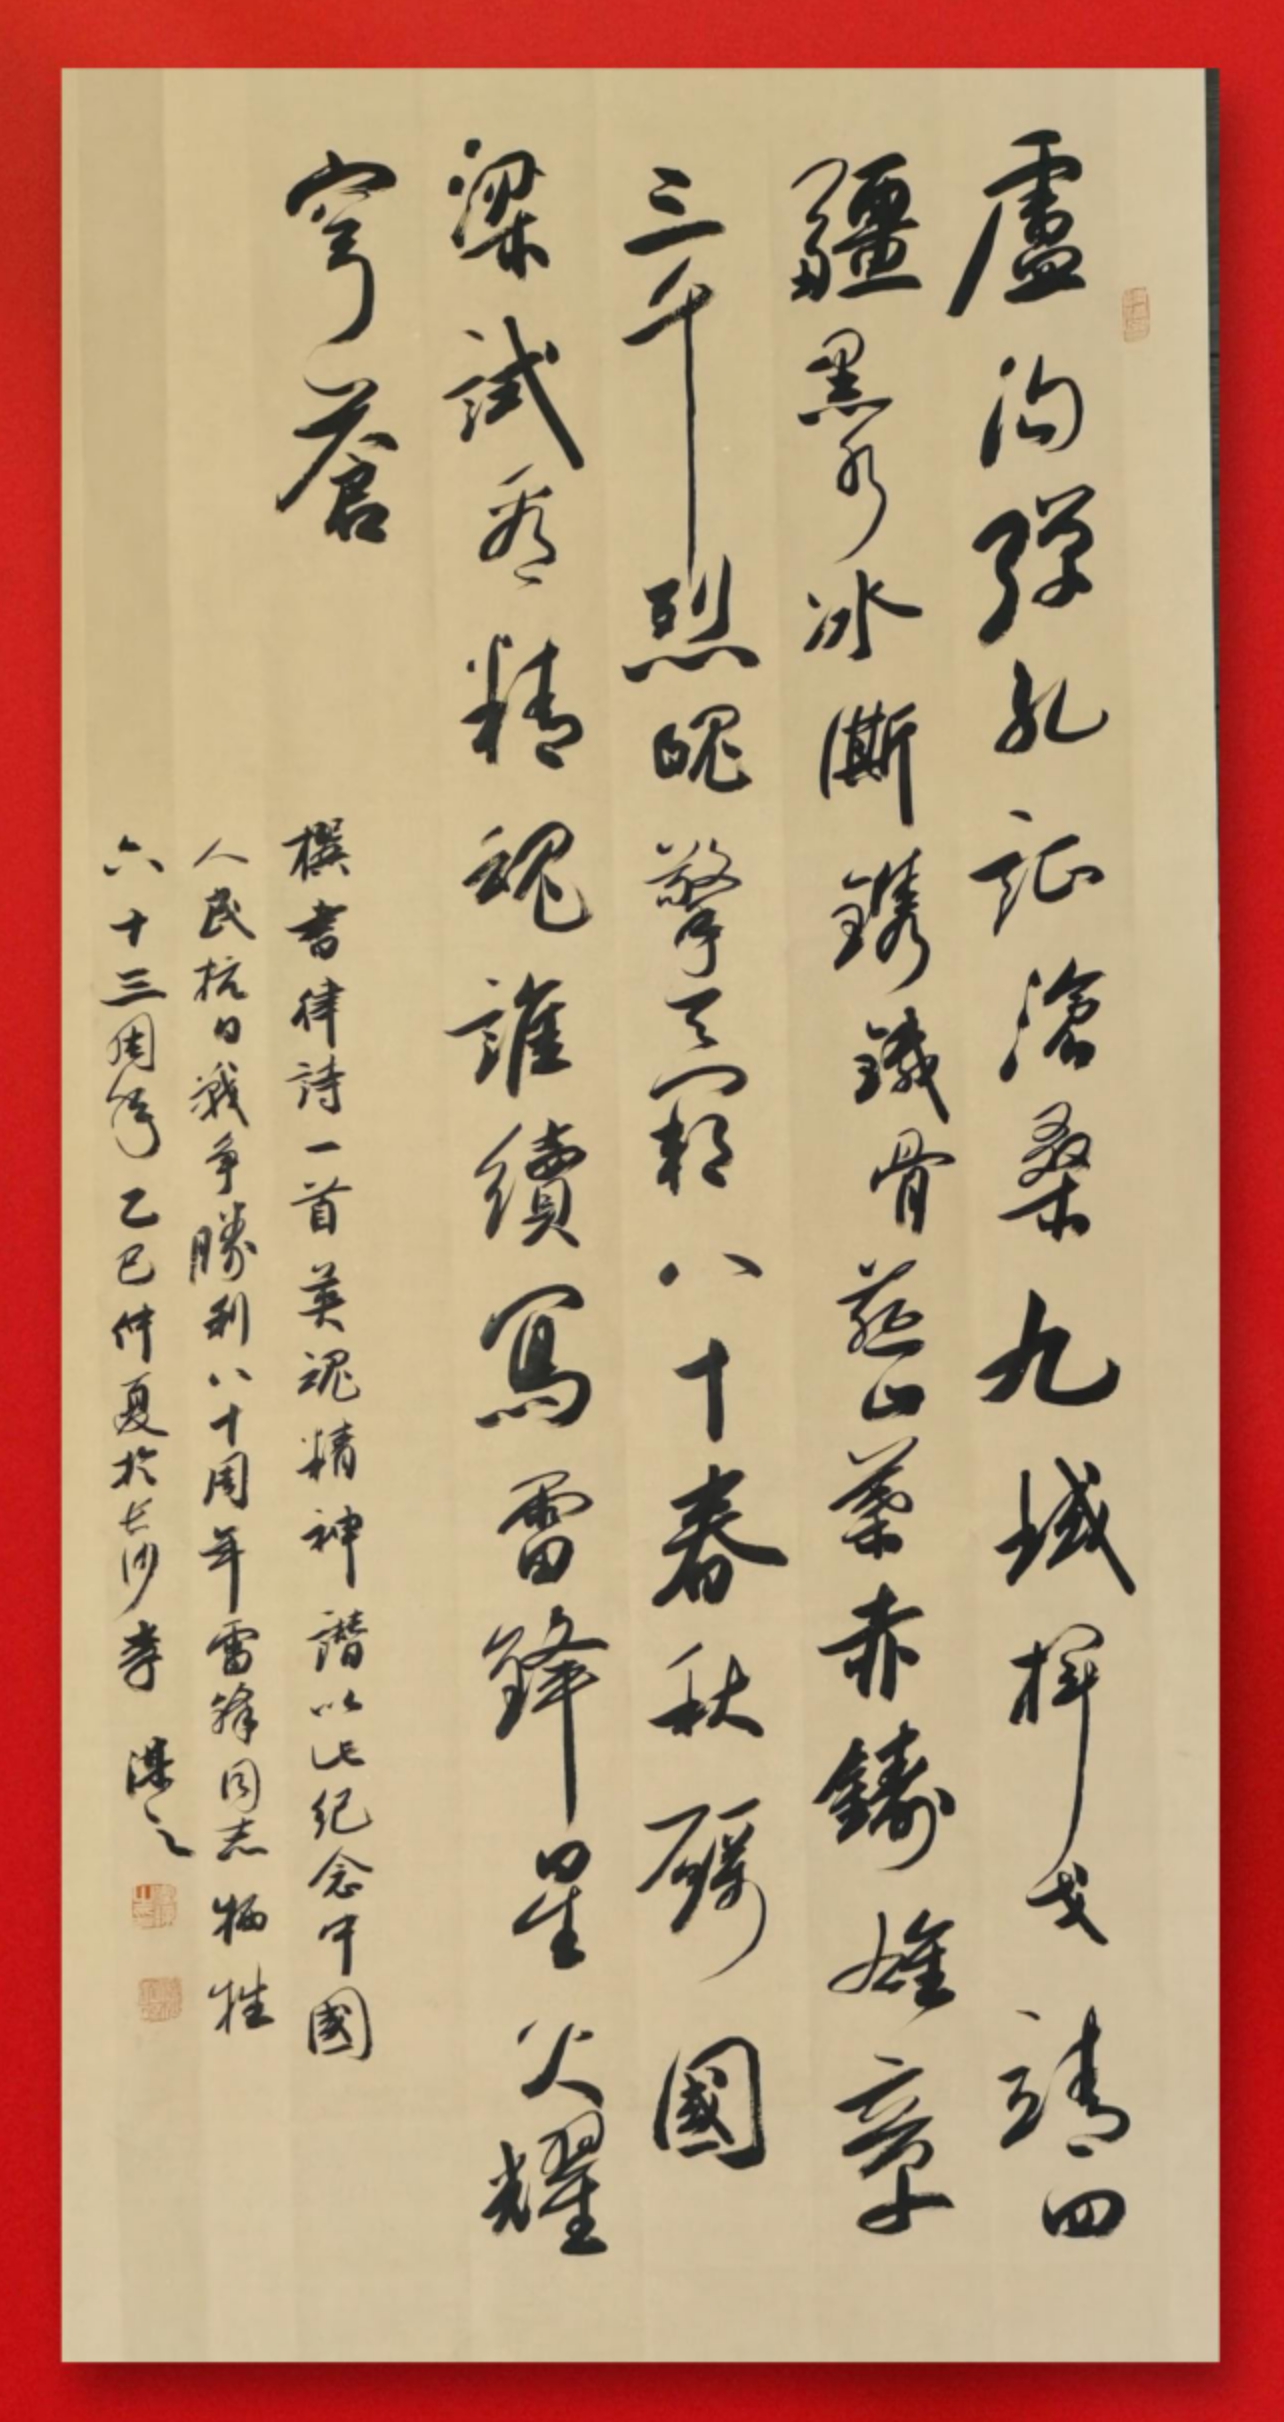 盧沟彈孔証滄桑九域揮戈靖四
疆黑水冰澌鐫鐵骨燕山葉赤鑄雄章
三千烈魄擎霄八十春秋礪國
梁試看精魂誰續寫雷鋒星火耀
穹蒼
撰書律詩一首英魂精神譜以此纪念中國
人民抗日戰争勝利八十周年雷鋒同志犧牲
六十三周年乙巳仲夏於长沙李